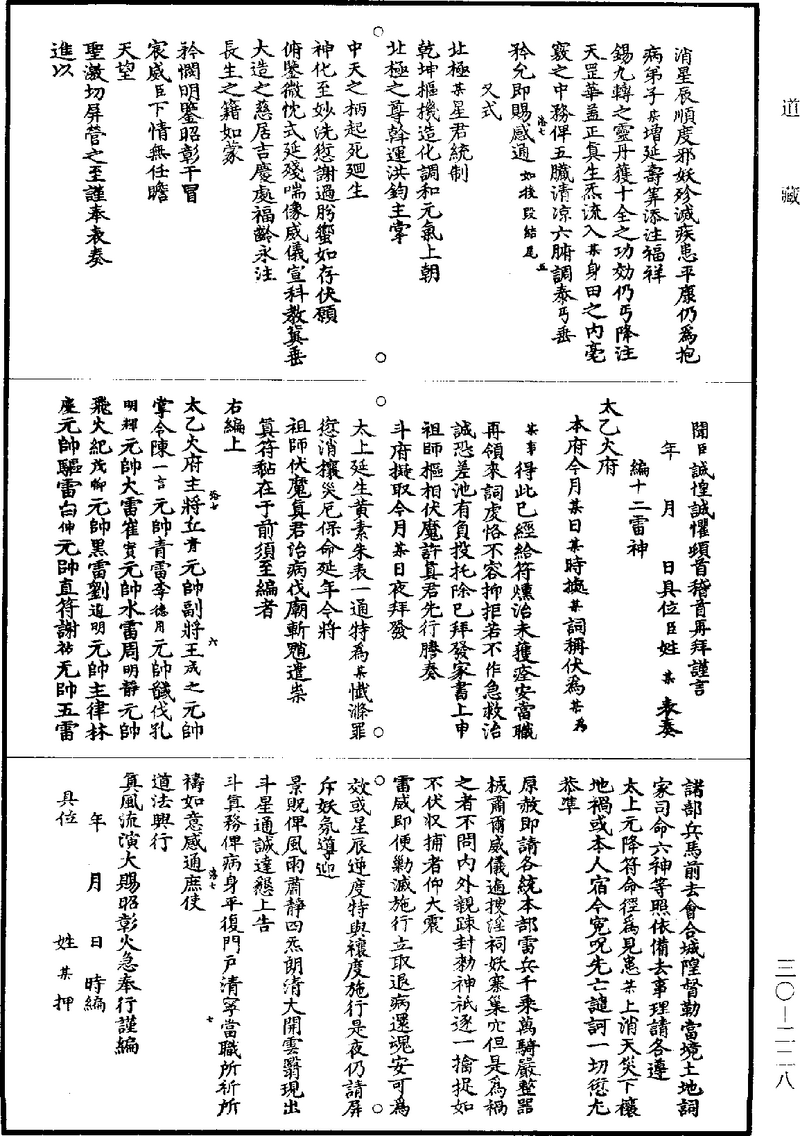 道藏
消星辰順度邪妖殄滅疾患平康仍為抱
病弟子某增延壽筭添注福祥
錫九轉之靈丹獲十全之功效仍丐降注
天罡華蓋正真生炁流入某身田之内毫
竅之中務俾五臟清凉六腑調泰丐垂
矜允即賜感通如投叚結尾
洛七
五
又式
北極某星君統制
乾坤樞機造化調和元氣上朝
北極之尊斡運洪鈞主掌
中天之柄起死廻生
神化至妙洗愆謝過肹蠁如存伏願
俯鑒微忱式延殘喘像威儀宣科教冀垂
大造之慈居吉慶處福齡永注
長生之籍如蒙
矜憫明鑒昭彰干冒
宸威臣下情無任瞻
天望
聖激切屏營之至謹奉表奏
進以
聞臣誠惶誠懼頓首稽首再拜謹言
年月日具位臣姓某表奏
編十二雷神
太乙火府
本府今月某日某時據某詞稱伏為某為
某事得此已經給符燻治未獲痊安當職
再領來詞虔恪不容抑拒若不作急救治
誠恐差池有負投托除已拜發家書上申
祖師樞相伏魔許真君先行謄奏
斗府擬取今月某日夜拜發
太上延生黄素朱表一通特為某懺滌罪
愆消攘災厄保命延年今將
祖師伏魔真君治病伐廟斬馘遣祟
真符黏在于前須至編者
右編上
太乙火府主將丘青元帥副將王成之元帥
洛七
六
掌令陳一言元帥青雷李德月元帥馘伐孔
明輝元帥大雷崔實元帥水雷周明静元帥
飛火紀茂卿元帥黒雷劉道明元帥主律林
慶元帥驅雷白伸元帥直符謝祐元帥五雷
諸部兵馬前去會合城隍督勒當境土地詞
家司命六神等照依備去事理請各遵
太上元降符命徑為見患某上消天災下禳
地禍或本人宿今寃呪先亡譴訶一切愆尤
恭凖
原赦即請各統本部雷兵千乘萬騎嚴整器
械肅爾威儀遍搜淫祠妖寨巢穴但是為禍
之者不問内外親疎封勑神祇逐一擒捉如
不伏収捕者仰大震
雷威即便勦滅施行立取退病還魂安可為
效或星辰逆度特與禳度施行是夜仍請屏
斥妖氛導迎
景貺俾風雨肅静四炁朗清大開雲翳現出
斗星通誠達懇上告
斗真務俾病身平復門戸清寧當職所祈所
洛七
七
禱如意感通庶使
道法興行
真風流演大賜昭彰火急奉行謹編
年月日時編
具位姓某押
三〇—二一八